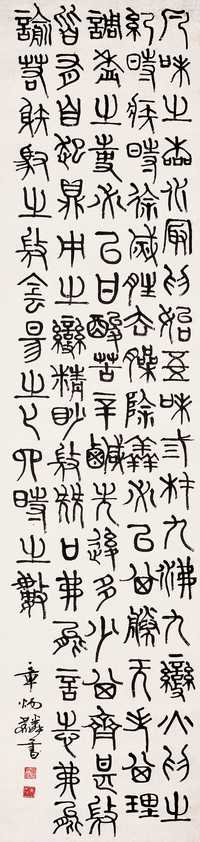 凡味之本水冣為始五味三材九沸九變火為之
紀時疾時徐滅胜去臊除羴必以其勝无失其理
調盉之事必以甘酸苦辛鹹先後多少其齊甚𢼸
皆有自起鼎中之變精眇𢼸韱口弗能言志弗能
諭若䠶馭之𢼸侌昜之匕四時之數
章炳麟書